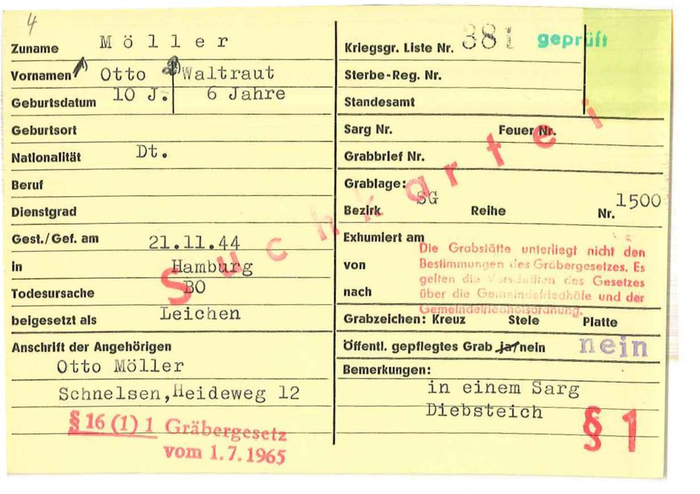 4
Zuname Möller
Vornamen Otto Waltraut
Geburtsdatum 10 J. 6 Jahre
Geburtsort
Nationalität Dt.
Beruf
Dienstgrad
Gest./Gef. am 21.11.44
in Hamburg
Todesursache BO
beigesetzt als Leichen
Anschrift der Angehörigen
Otto Möller
Schnelsen, Heideweg 12
§ 16 (1) 1 Gräbergesetz
vom 1.7.1965
Kriegsgr. Liste Nr. 381 geprüft
Sterbe-Reg. Nr.
Standesamt
Sarg Nr. Feuer Nr.
Grabbrief Nr.
Grablage: SG
Bezirk Reihe Nr. 1500
Exhumiert am
von
nach
Die Grabstätte unterliegt nicht den
Bestimmungen des Gräbergesetzes. Es
gelten die Vorschriften des Gesetzes
über die Gemeindefriedhöfe und der
Gemeindefriedhofsordnung.
Grabzeichen: Kreuz Stele Platte
Öffentl. gepflegtes Grab ja/nein nein
Bemerkungen:
in einem Sarg
Diebsteich
§ 1
Suchkartei